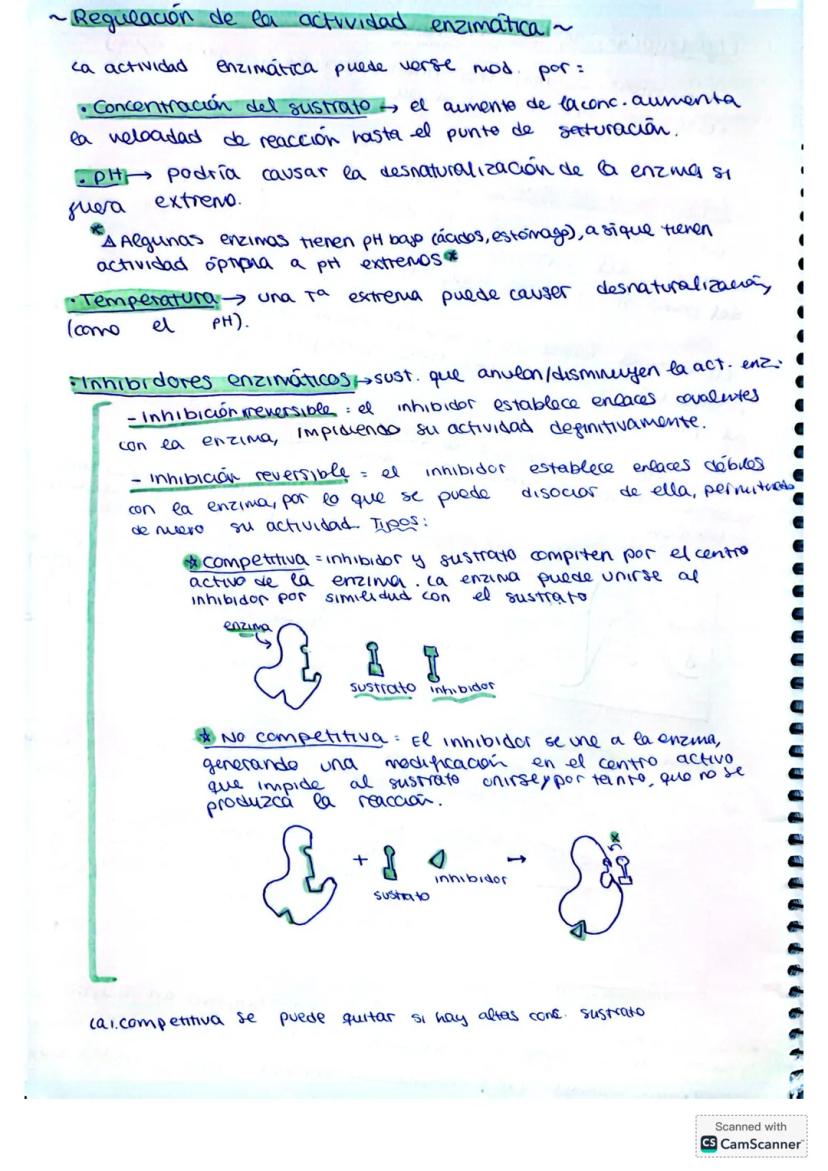 ~ Regulación de la actividad enzimática ~
La actividad enzimática puede verse mod. por:
• Concentración del sustrato → el aumento de la conc. aumenta
la velocidad de reacción hasta el punto de saturación.
• pH → podría causar la desnaturalización de la enzima si
fuera extremo.
* △ Algunas enzimas tienen pH bajo (ácidos, estómago), asique tienen
actividad óptima a pH extremos *
• Temperatura → una Tª extrema puede causar desnaturalización,
(como el pH).
• Inhibidores enzimáticos → sust. que anulan/disminuyen la act. enz.
- Inhibición irreversible: el inhibidor establece enlaces covalentes
con la enzima, impidiendo su actividad definitivamente.
- Inhibición reversible = el inhibidor establece enlaces débiles
con la enzima, por lo que se puede disociar de ella, permitiendo
de nuevo su actividad. Tipos:
* Competitiva = inhibidor y sustrato compiten por el centro
activo de la enzima. La enzima puede unirse al
inhibidor por similidud con el sustrato
enzima
sustrato inhibidor
* No competitiva: El inhibidor se une a la enzima,
generando una modificación en el centro activo
que impide al sustrato unirse y por tanto, que no se
produzca la reacción.
+ → x
inhibidor
sustrato
La i. competitiva se puede quitar si hay altas conc. sustrato
Scanned with
CS CamScanner